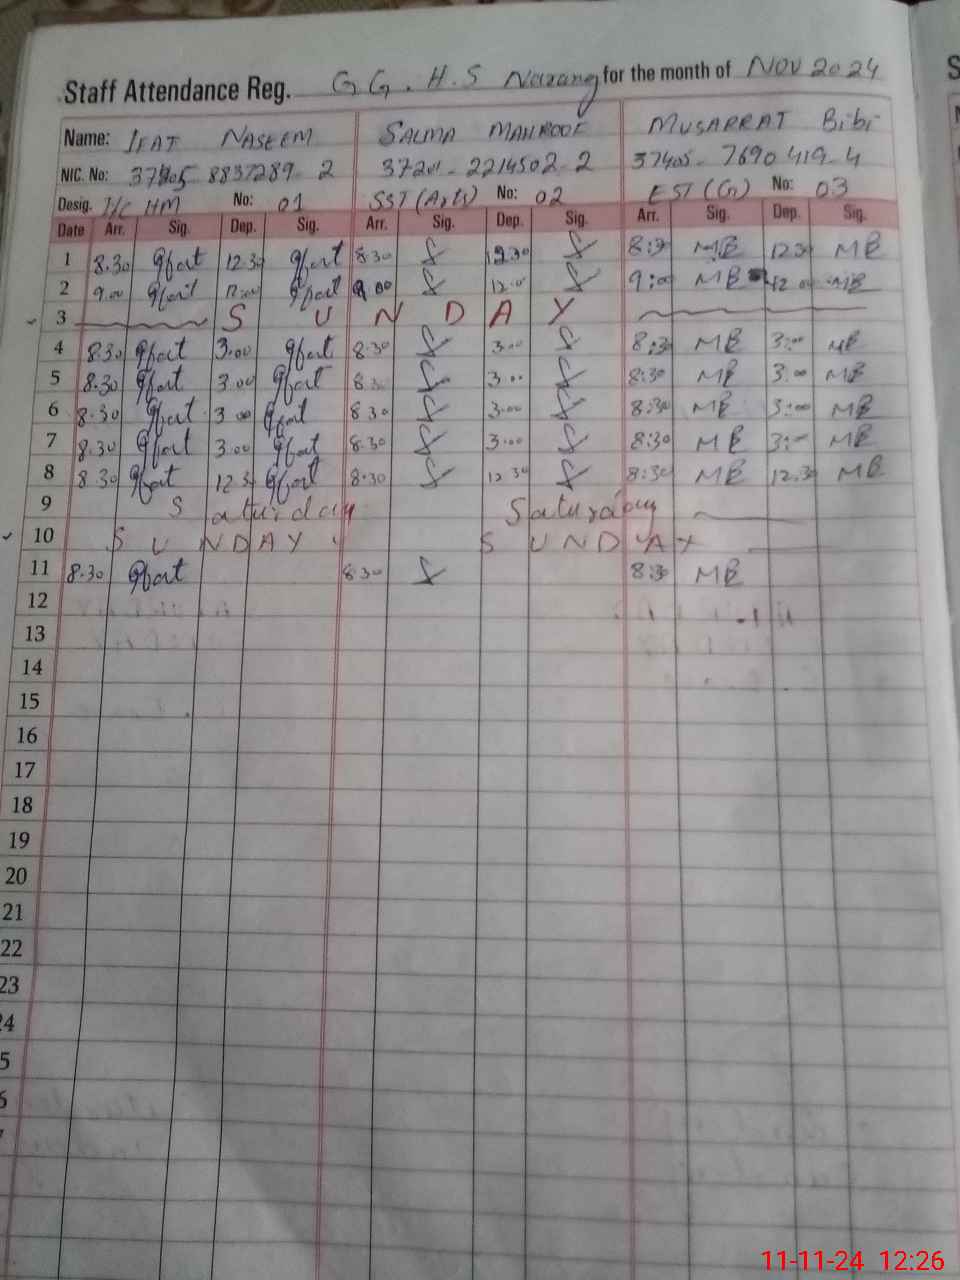 Staff Attendance Reg. G G. H. S Narang for the month of Nov 2024
Name: IFAT NASEEM SALMA MAHROOF MUSARRAT Bibi
NIC. No: 37405-8837289-2 37201-2214502-2 37405-7690419-4
Desig. I/C HM No: 01 SST (Arts) No: 02 EST (G) No: 03
Date Arr. Sig. Dep. Sig. Arr. Sig. Dep. Sig. Arr. Sig. Dep. Sig.
1 8.30 12.30 8.30 12.30 8:30 MB 12.30 MB
2 9.00 12:00 9.00 12.00 9:00 MB 12.00 MB
3 S U N D A Y
4 8.30 3.00 8.30 3.00 8:30 MB 3:00 MB
5 8.30 3.00 8.30 3.00 8:30 MB 3:00 MB
6 8.30 3.00 8.30 3.00 8:30 MB 3:00 MB
7 8.30 3.00 8.30 3.00 8:30 MB 3:00 MB
8 8.30 12.30 8.30 12.30 8:30 MB 12.30 MB
9 Saturday Saturday
10 S U N D A Y S U N D A Y
11 8.30 8.30 8:30 MB
12
13
14
15
16
17
18
19
20
21
22
23
11-11-24 12:26